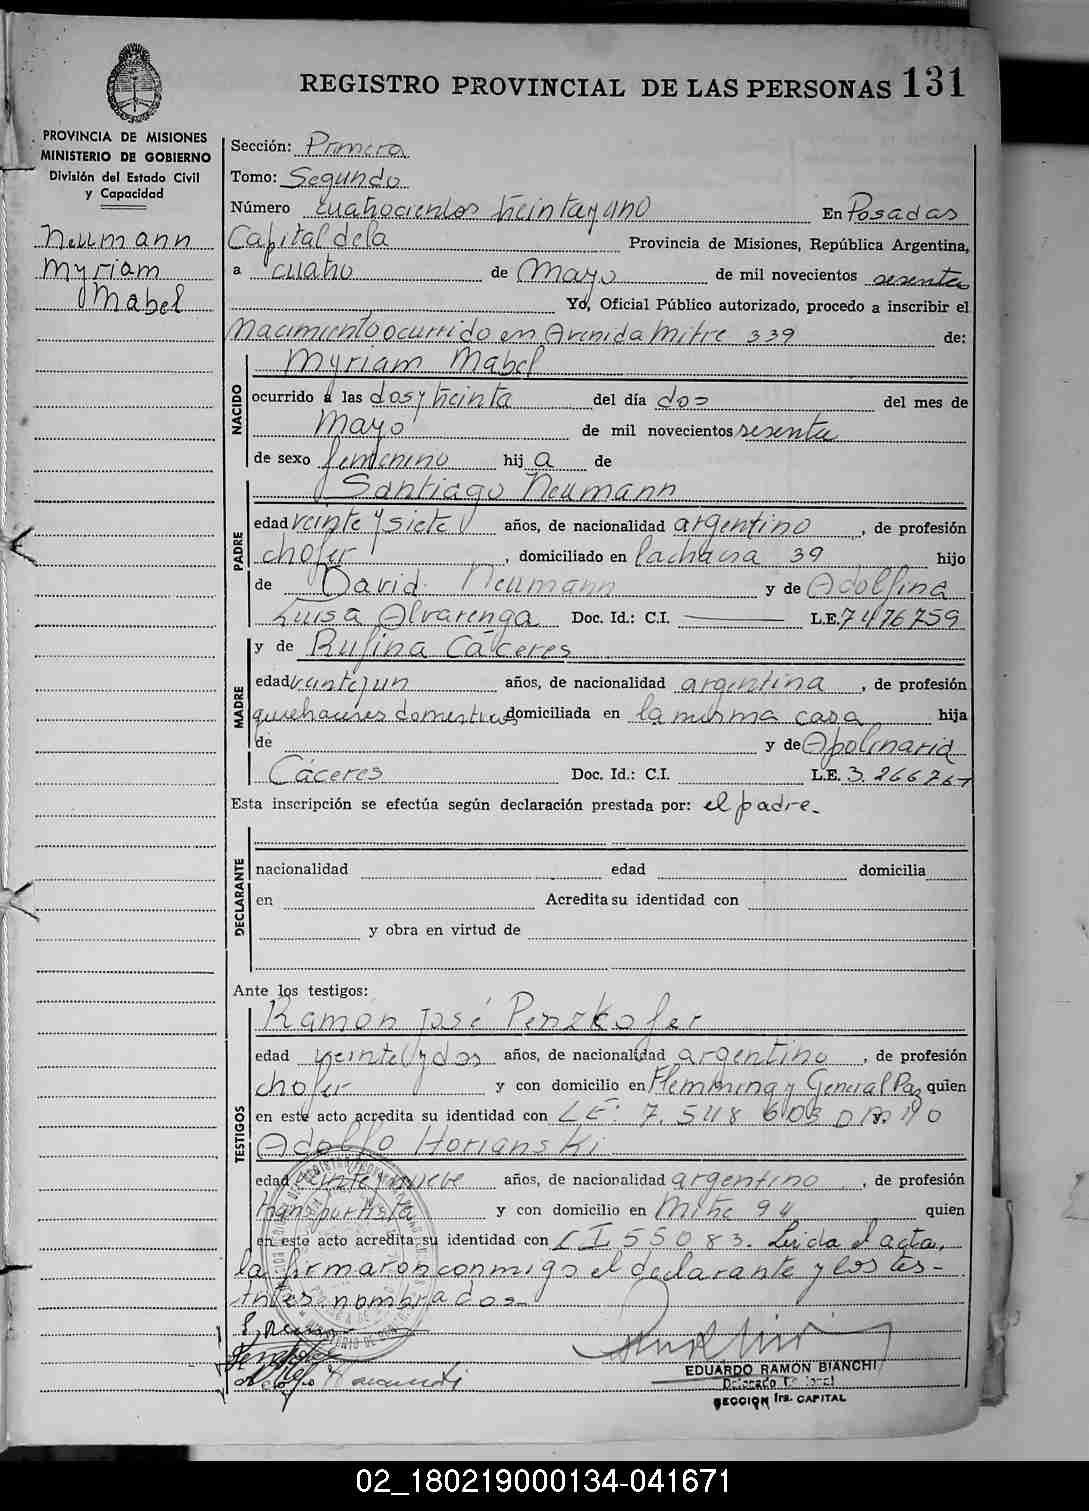 REGISTRO PROVINCIAL DE LAS PERSONAS 131
PROVINCIA DE MISIONES
MINISTERIO DE GOBIERNO
División del Estado Civil
y Capacidad
Neumann
Myriam
Mabel
Sección: Primera
Tomo: Segundo
Número cuatrocientos treinta y uno En Posadas
Capital de la Provincia de Misiones, República Argentina,
a cuatro de Mayo de mil novecientos sesenta
Yo, Oficial Público autorizado, procedo a inscribir el
Nacimiento ocurrido en Avenida Mitre 339 de:
NACIDO
Myriam Mabel
ocurrido a las dos y treinta del día dos del mes de
Mayo de mil novecientos sesenta
de sexo femenino hij a de
PADRE
Santiago Neumann
edad veinte y siete años, de nacionalidad argentino, de profesión
chofer, domiciliado en Lachacra 39 hijo
de David Neumann y de Adolfina
Luisa Alvarenga Doc. Id.: C.I. L.E. 7476759
MADRE
y de Rufina Cáceres
edad veintiun años, de nacionalidad argentina, de profesión
quehaceres domesticos domiciliada en la misma casa hija
de y de Apolinaria
Cáceres Doc. Id.: C.I. L.E. 3.266767
Esta inscripción se efectúa según declaración prestada por: el padre.
DECLARANTE
nacionalidad edad domicilia
en Acredita su identidad con
y obra en virtud de
Ante los testigos:
TESTIGOS
Ramon José Penzkofer
edad veinte y dos años, de nacionalidad argentino, de profesión
chofer y con domicilio en Flemming y General Paz quien
en este acto acredita su identidad con LE. 7.548 603 DM y. 10
Adolfo Horianski
edad veinte y nueve años, de nacionalidad argentino, de profesión
transportista y con domicilio en Mitre 94 quien
en este acto acredita su identidad con CI 55083. Leida el acta,
la firmaron conmigo el declarante y los tes-
tigos nombrados
EDUARDO RAMON BIANCHI
SECCION 1ra. CAPITAL
02_180219000134-041671